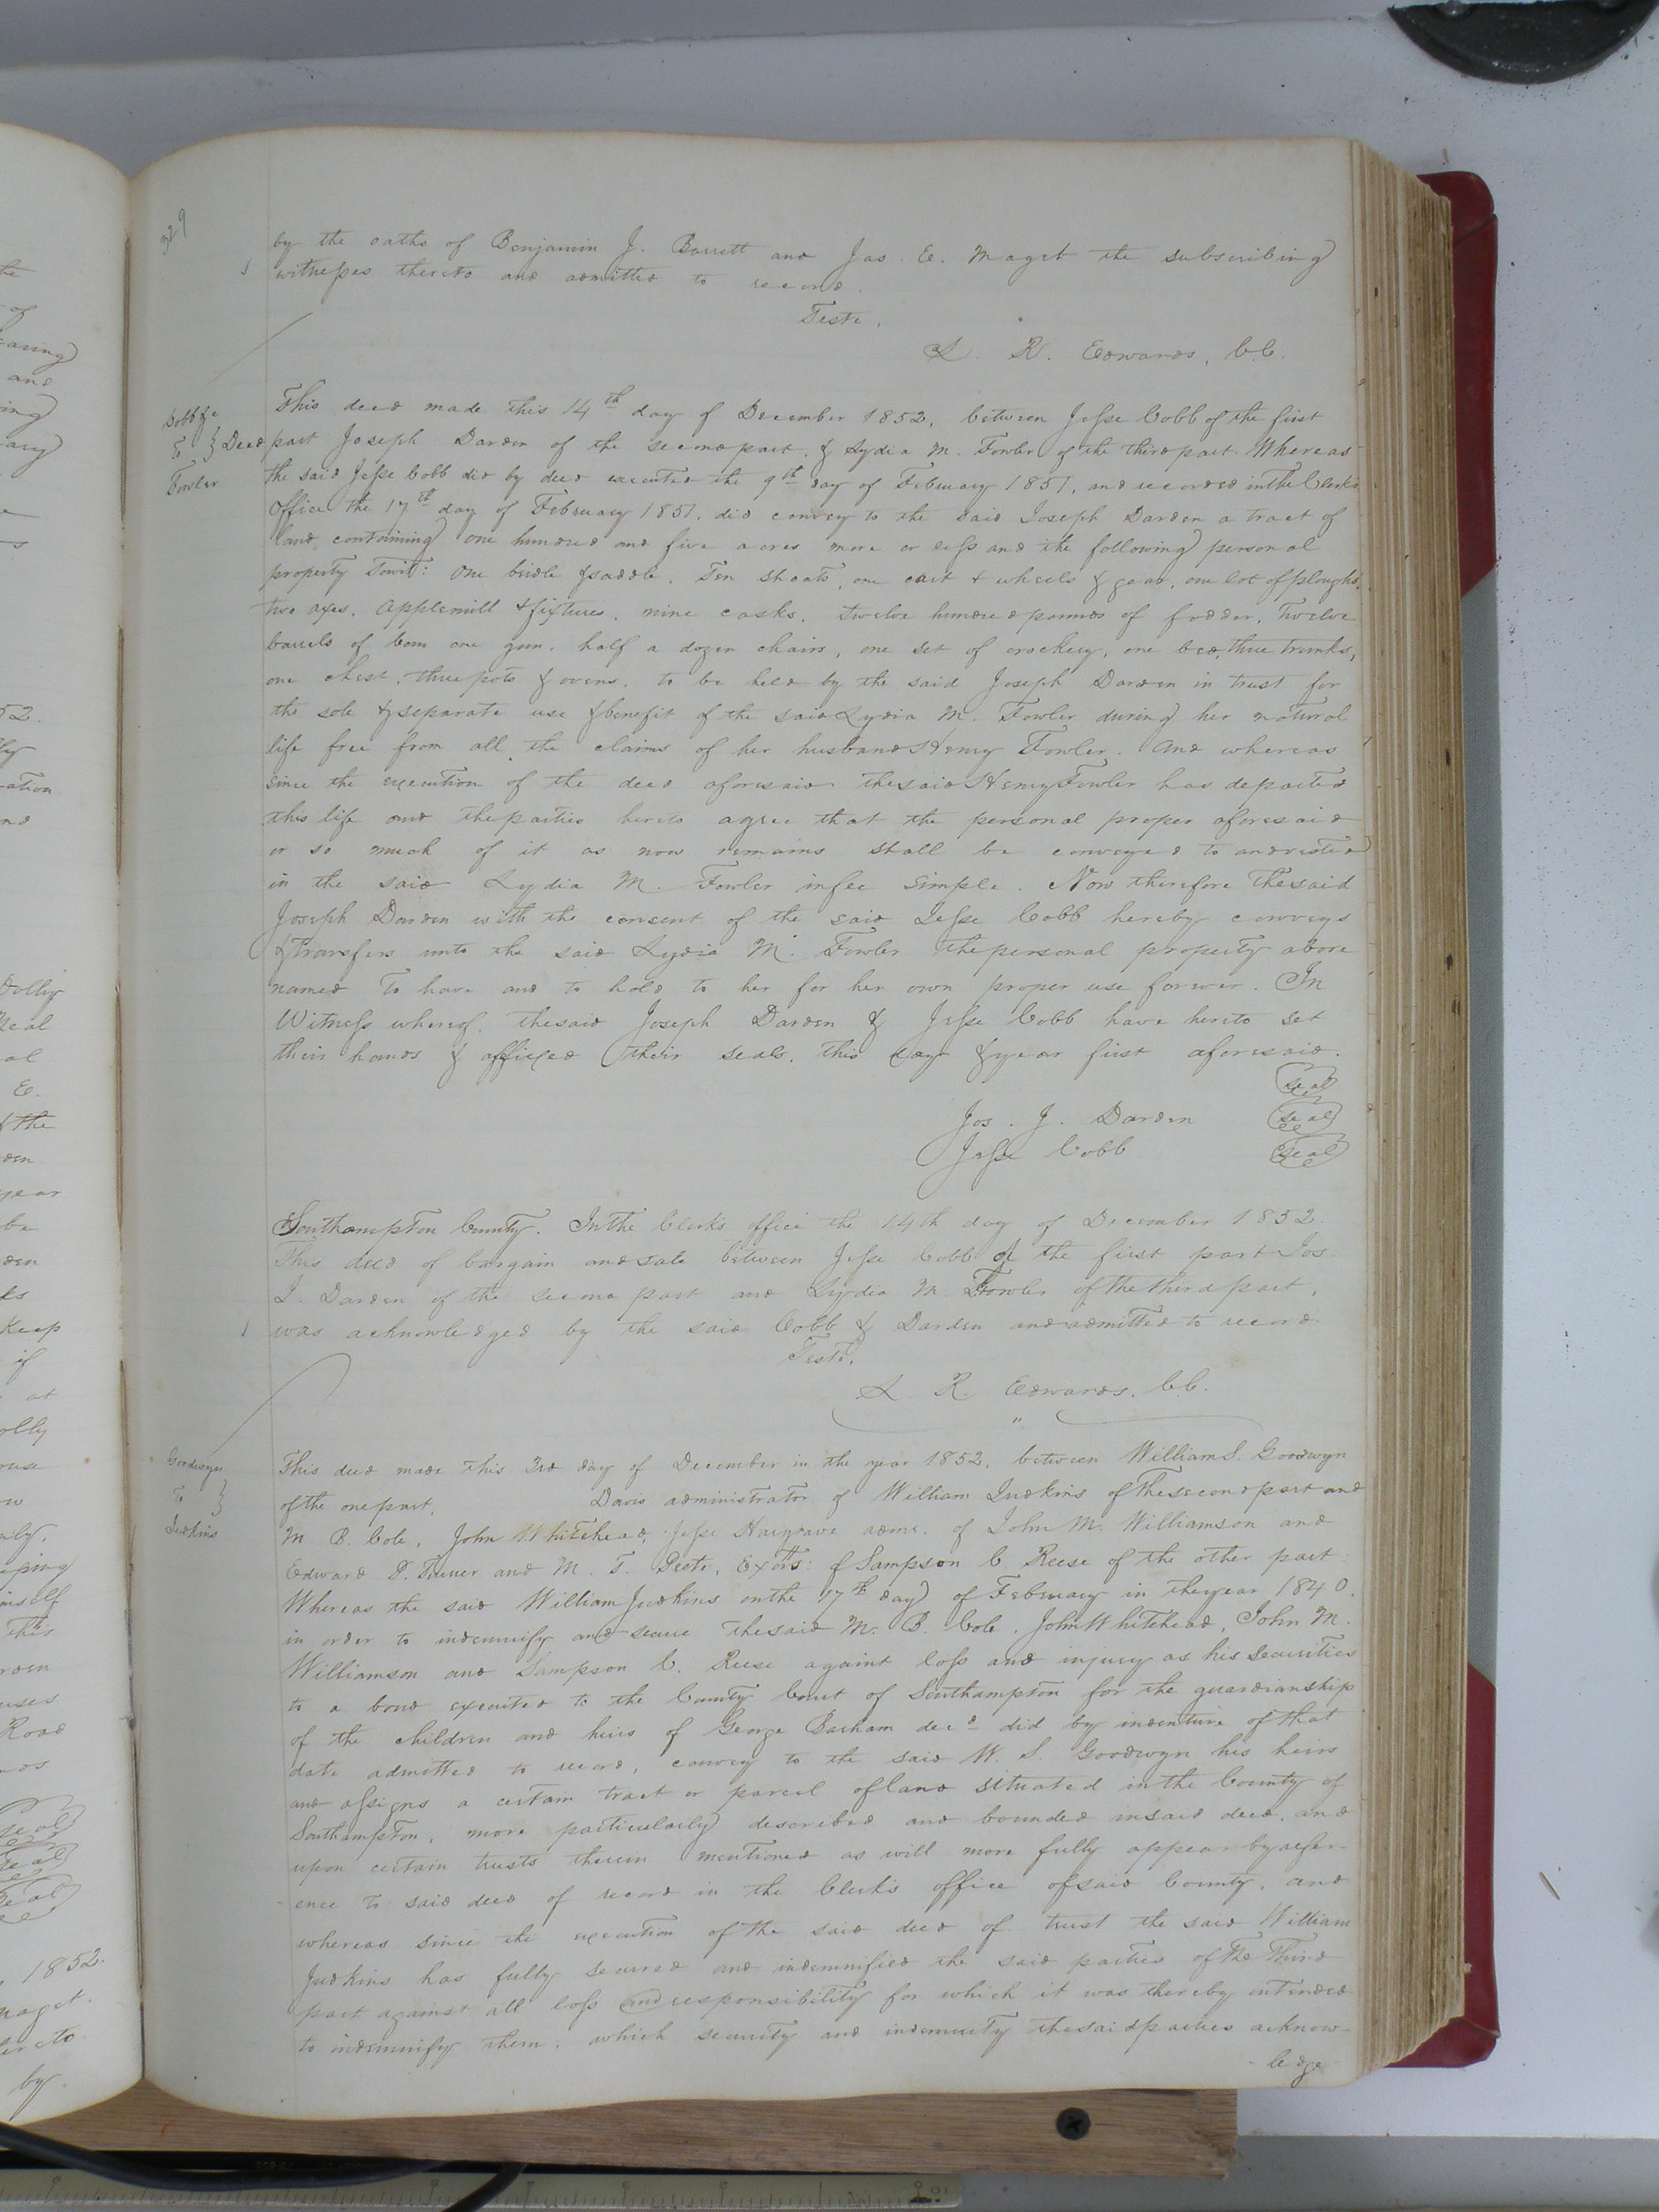 329
by the oaths of Benjamin J. Barrett and Jas. E. Maget the subscribing
witnesses thereto and admitted to record.
Teste,
L. R. Edwards, C.C.
Cobb &c
To } Deed
Fowler
This deed made this 14th day of December 1852, between Jesse Cobb of the first
part Joseph Darden of the second part, & Lydia M. Fowler of the third part. Whereas
the said Jesse Cobb did by deed executed the 9th day of February 1851, and recorded in the Clerks
Office the 17th day of February 1851, did convey to the said Joseph Darden a tract of
land containing one hundred and five acres more or less and the following personal
property Towit: One bridle & saddle, Ten shoats, one cart & wheels & gear, one lot of ploughs,
two axes, applemill & fixtures, nine casks, twelve hundred pounds of fodder, Twelve
barrels of Corn one gun, half a dozen chairs, one set of crockery, one bed, three trunks,
one chest, three pots & ovens, to be held by the said Joseph Darden in trust for
the sole & separate use & benefit of the said Lydia M. Fowler during her natural
life free from all the claims of her husband Henry Fowler. And whereas
since the execution of the deed aforesaid the said Henry Fowler has departed
this life and the parties hereto agree that the personal proper aforesaid
or so much of it as now remains shall be conveyed to and vested
in the said Lydia M. Fowler in fee simple. Now therefore The said
Joseph Darden with the consent of the said Jesse Cobb hereby conveys
& Transfers unto the said Lydia M. Fowler the personal property above
named To have and to hold to her for her own proper use forever. In
Witness whereof, the said Joseph Darden & Jesse Cobb have hereto set
their hands & affixed their seals, this day & year first aforesaid.
Seal
Jos. J. Darden Seal
Jesse Cobb Seal
Southampton County. In the Clerk's office the 14th day of December 1852.
This deed of bargain and sale between Jesse Cobb of the first part Jos.
J. Darden of the second part and Lydia M. Fowler of the third part,
was acknowledged by the said Cobb & Darden and admitted to record.
Teste,
L. R. Edwards, C.C.
Goodwyn
To }
Judkins
This deed made this 3rd day of December in the year 1852, between William S. Goodwyn
of the one part, Davis administrator of William Judkins of the second part and
M. B. Cole, John Whitehead, Jesse Hargrave admr. of John M. Williamson and
Edward D. Turner and M. T. Peete, Exors: of Sampson C. Reese of the other part:
Whereas the said William Judkins on the 17th day of February in the year 1840.
in order to indemnify and secure the said M. B. Cole, John Whitehead, John M.
Williamson and Sampson C. Reese againt loss and injury as his Securities
to a bond executed to the County Court of Southampton for the guardianship
of the children and heirs of George Barham decd did by indenture of that
date admitted to record, convey to the said W. S. Goodwyn his heirs
and assigns a certain tract or parcel of land situated in the County of
Southampton, more particularly described and bounded in said deed, and
upon certain trusts therein mentioned as will more fully appear by refer-
ence to said deed of record in the Clerk's office of said County, and
whereas since the execution of the said deed of trust the said William
Judkins has fully secured and indemnified the said parties of the Third
part against all loss and responsibility for which it was thereby intended
to indemnify them, which security and indemnity the said parties acknow-
ledge